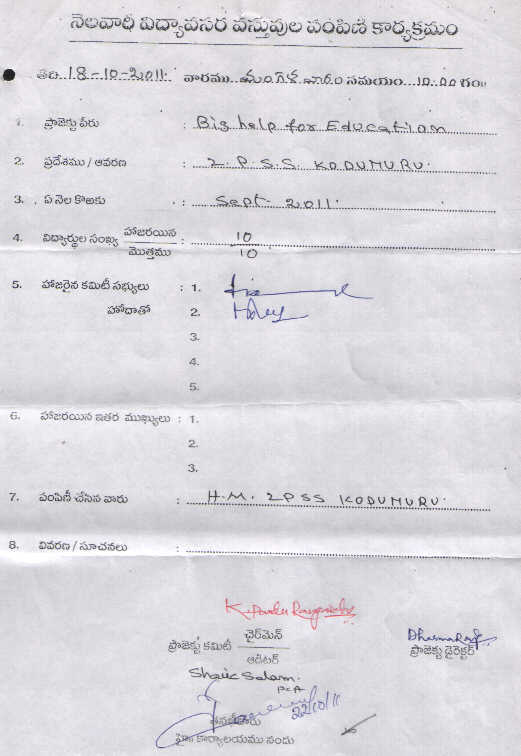 నెలవారీ విద్యావసర వస్తువుల పంపిణీ కార్యక్రమం
తేది 18-10-2011. వారము మంగళ వారం సమయం 10.00 గం॥
1. ప్రాజెక్టు పేరు : Big help for Education
2. ప్రదేశము / ఆవరణ : Z. P. S. S. KODUMURU.
3. ఏ నెల కొఱకు : Sept- 2011.
4. విద్యార్థుల సంఖ్య హాజరయిన / మొత్తము : 10 / 10
5. హాజరైన కమిటీ సభ్యులు : 1.
హోదాతో 2.
3.
4.
5.
6. హాజరయిన ఇతర ముఖ్యులు : 1.
2.
3.
7. పంపిణీ చేసిన వారు : H.M. ZPSS KODUMURU.
8. వివరణ / సూచనలు :
ప్రాజెక్టు కమిటీ ఛైర్‌మెన్ / ఆడిటర్
ప్రాజెక్టు డైరెక్టర్
Shaic Salam.
22/10/11
కార్యాలయము నందు